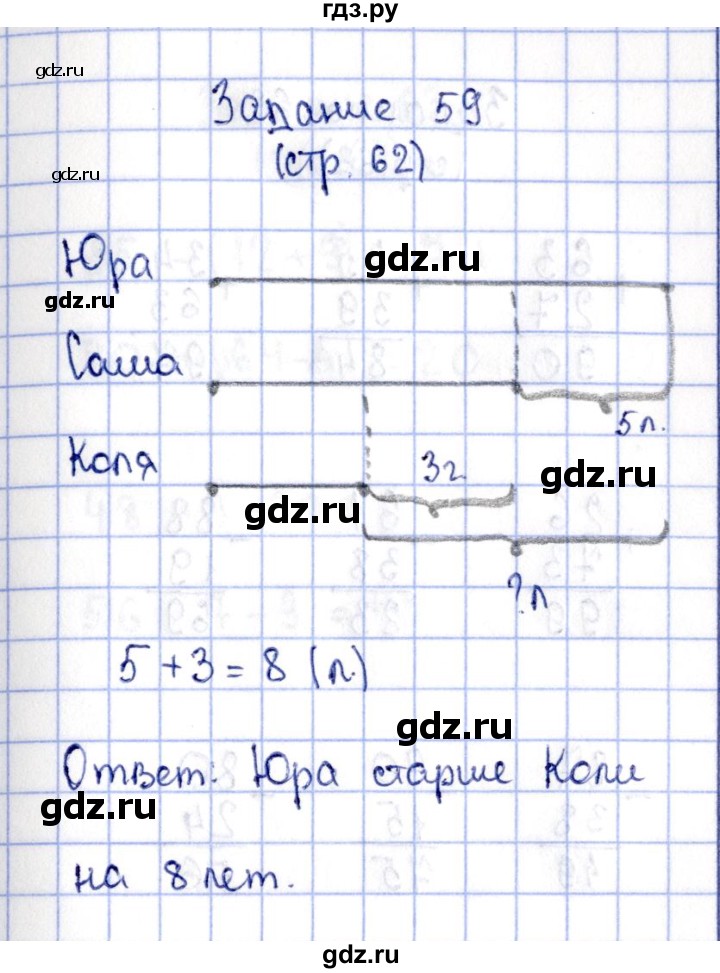 гдз.ру
gdz.ru
Задание 59
gdz.ru
(стр. 62)
Юра
gdz.ru
gdz.ru
Саша
5 л.
Коля
3 г.
gdz.ru
gdz.ru
? л
5 + 3 = 8 (л.)
gdz.ru
Ответ: Юра старше Коли
gdz.ru
на 8 лет.
gdz.ru